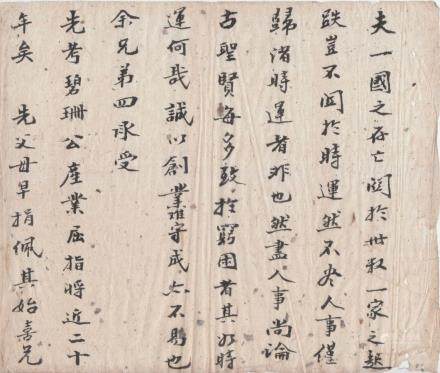 夫一國之存亡関於世叔一家之起
跌豈不関於時運然不尽人事僅
歸渚時運者非也然盡人事尚論
古聖賢每多致於窮困者其如時
運何哉誠以創業難守成亦不易也
余兄弟四承受
先考碧珊公産業屈指將近二十
年矣 先父母早捐佩其始喜兄